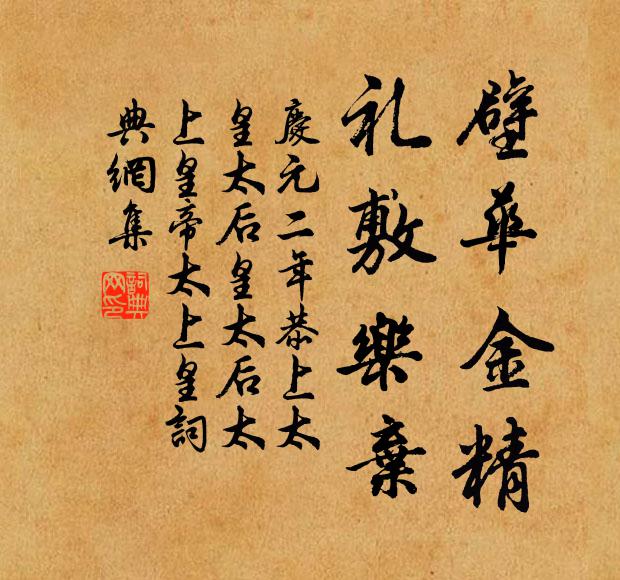 璧華金精
礼敷樂棄
慶元二年恭上太
皇太后皇太后太
上皇帝太上皇詞
典網集
詞典網印